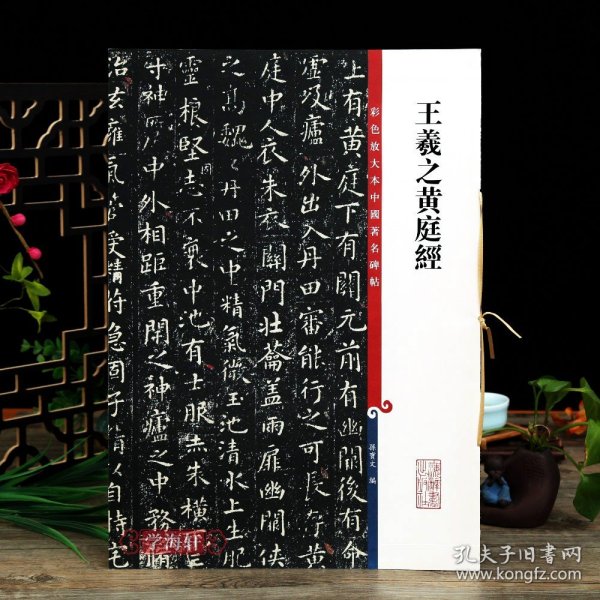 王羲之黄庭經
彩色放大本中國著名碑帖
孫寶文 編
上有黄庭下有關元前有幽闕後有命
嘘吸廬外出入丹田審能行之可長存黄
庭中人衣朱衣關門壮蘥盖兩扉幽闕俠
之高魏〻丹田之中精氣微玉池清水上生肥
靈根堅志不衰中池有士服赤朱橫
寸神所中外相距重閉之神廬之中務脩
治玄癰氣管受精符急固子精以自持宅
学海轩
孔夫子旧書网
www.kongfz.com